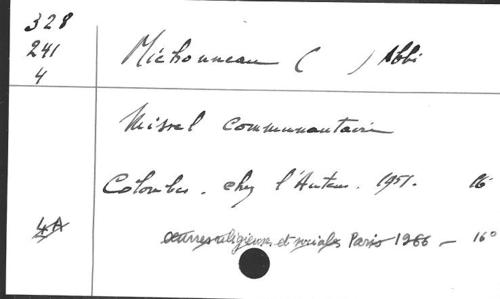 328
241
4
Michonneau ( ) Abbé
Missel communautaire
Colombes. chez l'Auteur. 1951. 16
4A
œuvres religieuses et sociales Paris 1966 — 16°